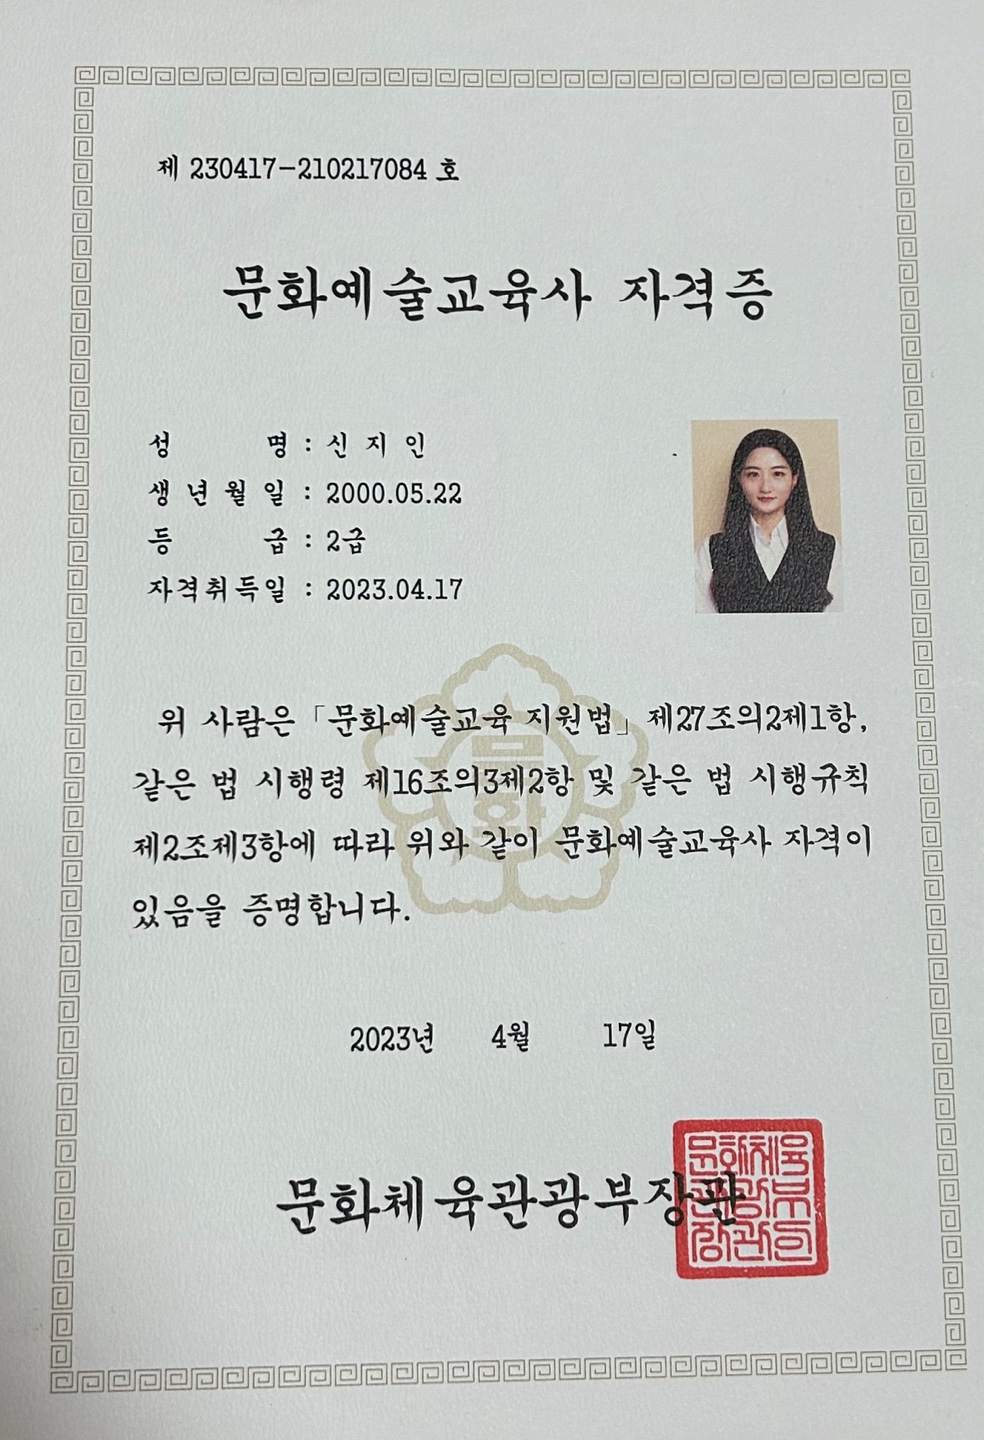 제 230417-210217084 호
문화예술교육사 자격증
성 명 : 신 지 인
생 년 월 일 : 2000.05.22
등 급 : 2급
자격취득일 : 2023.04.17
위 사람은 「문화예술교육 지원법」 제27조의2제1항,
같은 법 시행령 제16조의3제2항 및 같은 법 시행규칙
제2조제3항에 따라 위와 같이 문화예술교육사 자격이
있음을 증명합니다.
문화
2023년 4월 17일
문화체육관광부장관
문화체육
관광부
장관의